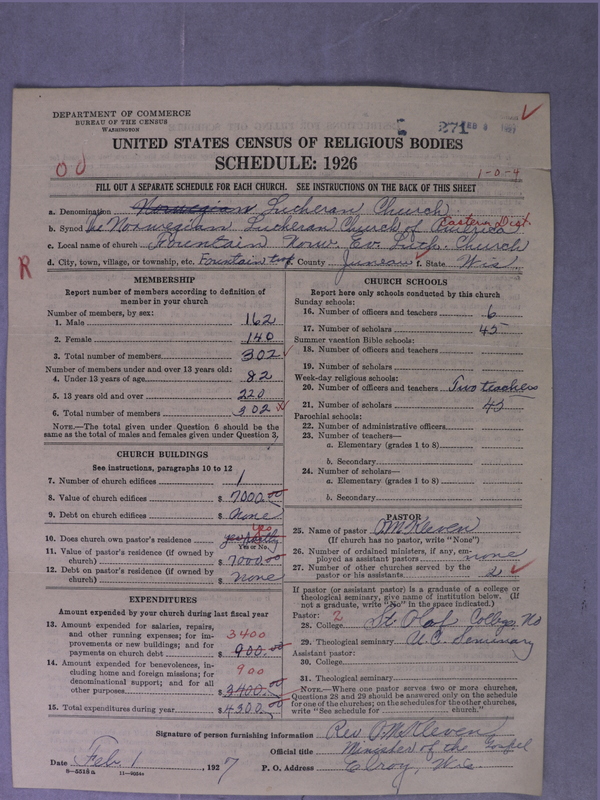 DEPARTMENT OF COMMERCE
BUREAU OF THE CENSUS
WASHINGTON
271 FEB 8 1927
UNITED STATES CENSUS OF RELIGIOUS BODIES
SCHEDULE: 1926
1-0-9
FILL OUT A SEPARATE SCHEDULE FOR EACH CHURCH. SEE INSTRUCTIONS ON THE BACK OF THIS SHEET
a. Denomination Norwegian Lutheran Church
b. Synod The Norwegian Lutheran Church of America Eastern Dist.
c. Local name of church Fountain Norw. Ev. Luth. Church
R
d. City, town, village, or township, etc. Fountain twp. e. County Juneau f. State Wis
MEMBERSHIP
Report number of members according to definition of
member in your church
Number of members, by sex:
1. Male 162
2. Female 140
3. Total number of members 302
Number of members under and over 13 years old:
4. Under 13 years of age 82
5. 13 years old and over 220
6. Total number of members 302
NOTE.—The total given under Question 6 should be the
same as the total of males and females given under Question 3.
CHURCH BUILDINGS
See instructions, paragraphs 10 to 12
7. Number of church edifices 1
8. Value of church edifices $ 7000.00
9. Debt on church edifices $ None
10. Does church own pastor's residence Yes
Yes or No.
11. Value of pastor's residence (if owned by
church) $ 7000.00
12. Debt on pastor's residence (if owned by
church) $ None
EXPENDITURES
Amount expended by your church during last fiscal year
13. Amount expended for salaries, repairs,
and other running expenses; for im-
provements or new buildings; and for
payments on church debt 3400 $ 900.00
14. Amount expended for benevolences, in-
cluding home and foreign missions; for
denominational support; and for all
other purposes 900 $ 3400.00
15. Total expenditures during year $ 4300.00
CHURCH SCHOOLS
Report here only schools conducted by this church
Sunday schools:
16. Number of officers and teachers 6
17. Number of scholars 45
Summer vacation Bible schools:
18. Number of officers and teachers
19. Number of scholars
Week-day religious schools:
20. Number of officers and teachers Two teachers
21. Number of scholars 45
Parochial schools:
22. Number of administrative officers
23. Number of teachers—
a. Elementary (grades 1 to 8)
b. Secondary
24. Number of scholars—
a. Elementary (grades 1 to 8)
b. Secondary
PASTOR
25. Name of pastor O.M. Kleven
(If church has no pastor, write "None")
26. Number of ordained ministers, if any, em-
ployed as assistant pastors none
27. Number of other churches served by the
pastor or his assistants 2
If pastor (or assistant pastor) is a graduate of a college or
theological seminary, give name of institution below. (If
not a graduate, write "No" in the space indicated.)
Pastor: 2
28. College St Olaf College, No
29. Theological seminary U.C. Seminary
Assistant pastor:
30. College
31. Theological seminary
NOTE.—Where one pastor serves two or more churches,
Questions 28 and 29 should be answered only on the schedule
for one of the churches; on the schedules for the other churches,
write "See schedule for church."
Signature of person furnishing information Rev O.M. Kleven
Official title Minister of the Gospel
Date Feb. 1, 1927 P. O. Address Elroy, Wis
8-5518a